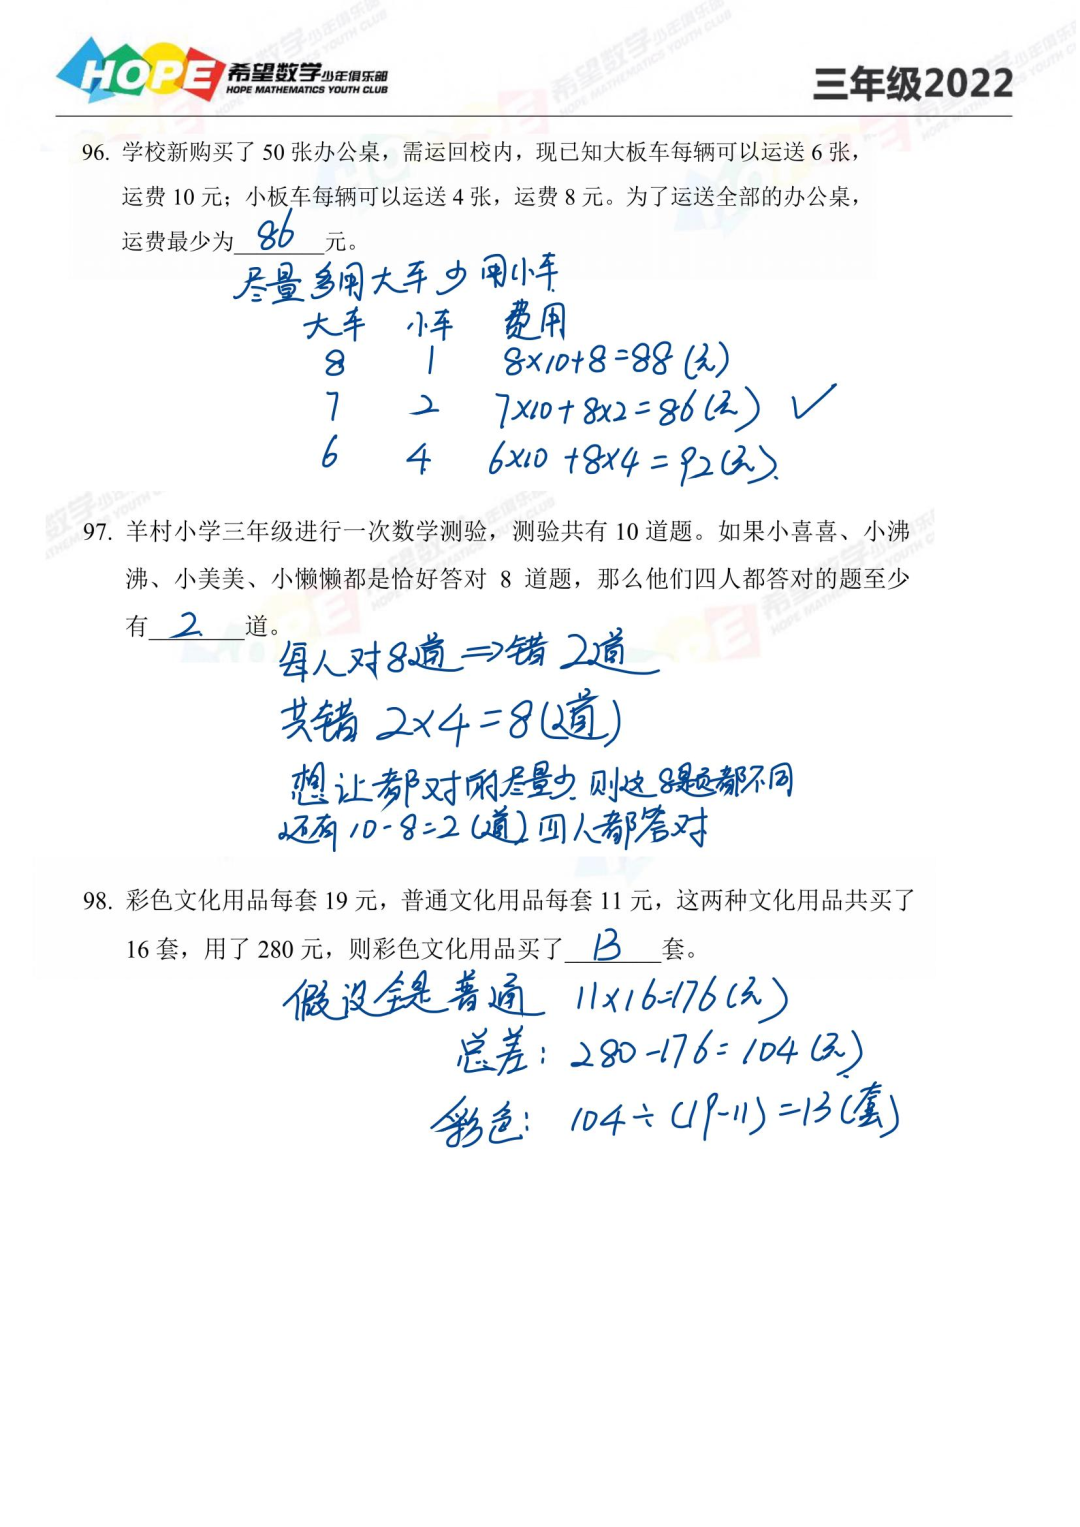 HOPE 希望数学少年俱乐部
HOPE MATHEMATICS YOUTH CLUB
三年级2022
96. 学校新购买了 50 张办公桌，需运回校内，现已知大板车每辆可以运送 6 张，
运费 10 元；小板车每辆可以运送 4 张，运费 8 元。为了运送全部的办公桌，
运费最少为 86 元。
尽量多用大车少用小车
大车 小车 费用
8 1 8×10+8=88(元)
7 2 7×10+8×2=86(元) ✓
6 4 6×10+8×4=92(元)
97. 羊村小学三年级进行一次数学测验，测验共有 10 道题。如果小喜喜、小沸
沸、小美美、小懒懒都是恰好答对 8 道题，那么他们四人都答对的题至少
有 2 道。
每人对8道⇒错2道
共错 2×4=8(道)
想让都对的尽量少,则这8题都不同
还有10-8=2(道)四人都答对
98. 彩色文化用品每套 19 元，普通文化用品每套 11 元，这两种文化用品共买了
16 套，用了 280 元，则彩色文化用品买了 13 套。
假设全是普通 11×16=176(元)
总差: 280-176=104(元)
彩色: 104÷(19-11)=13(套)